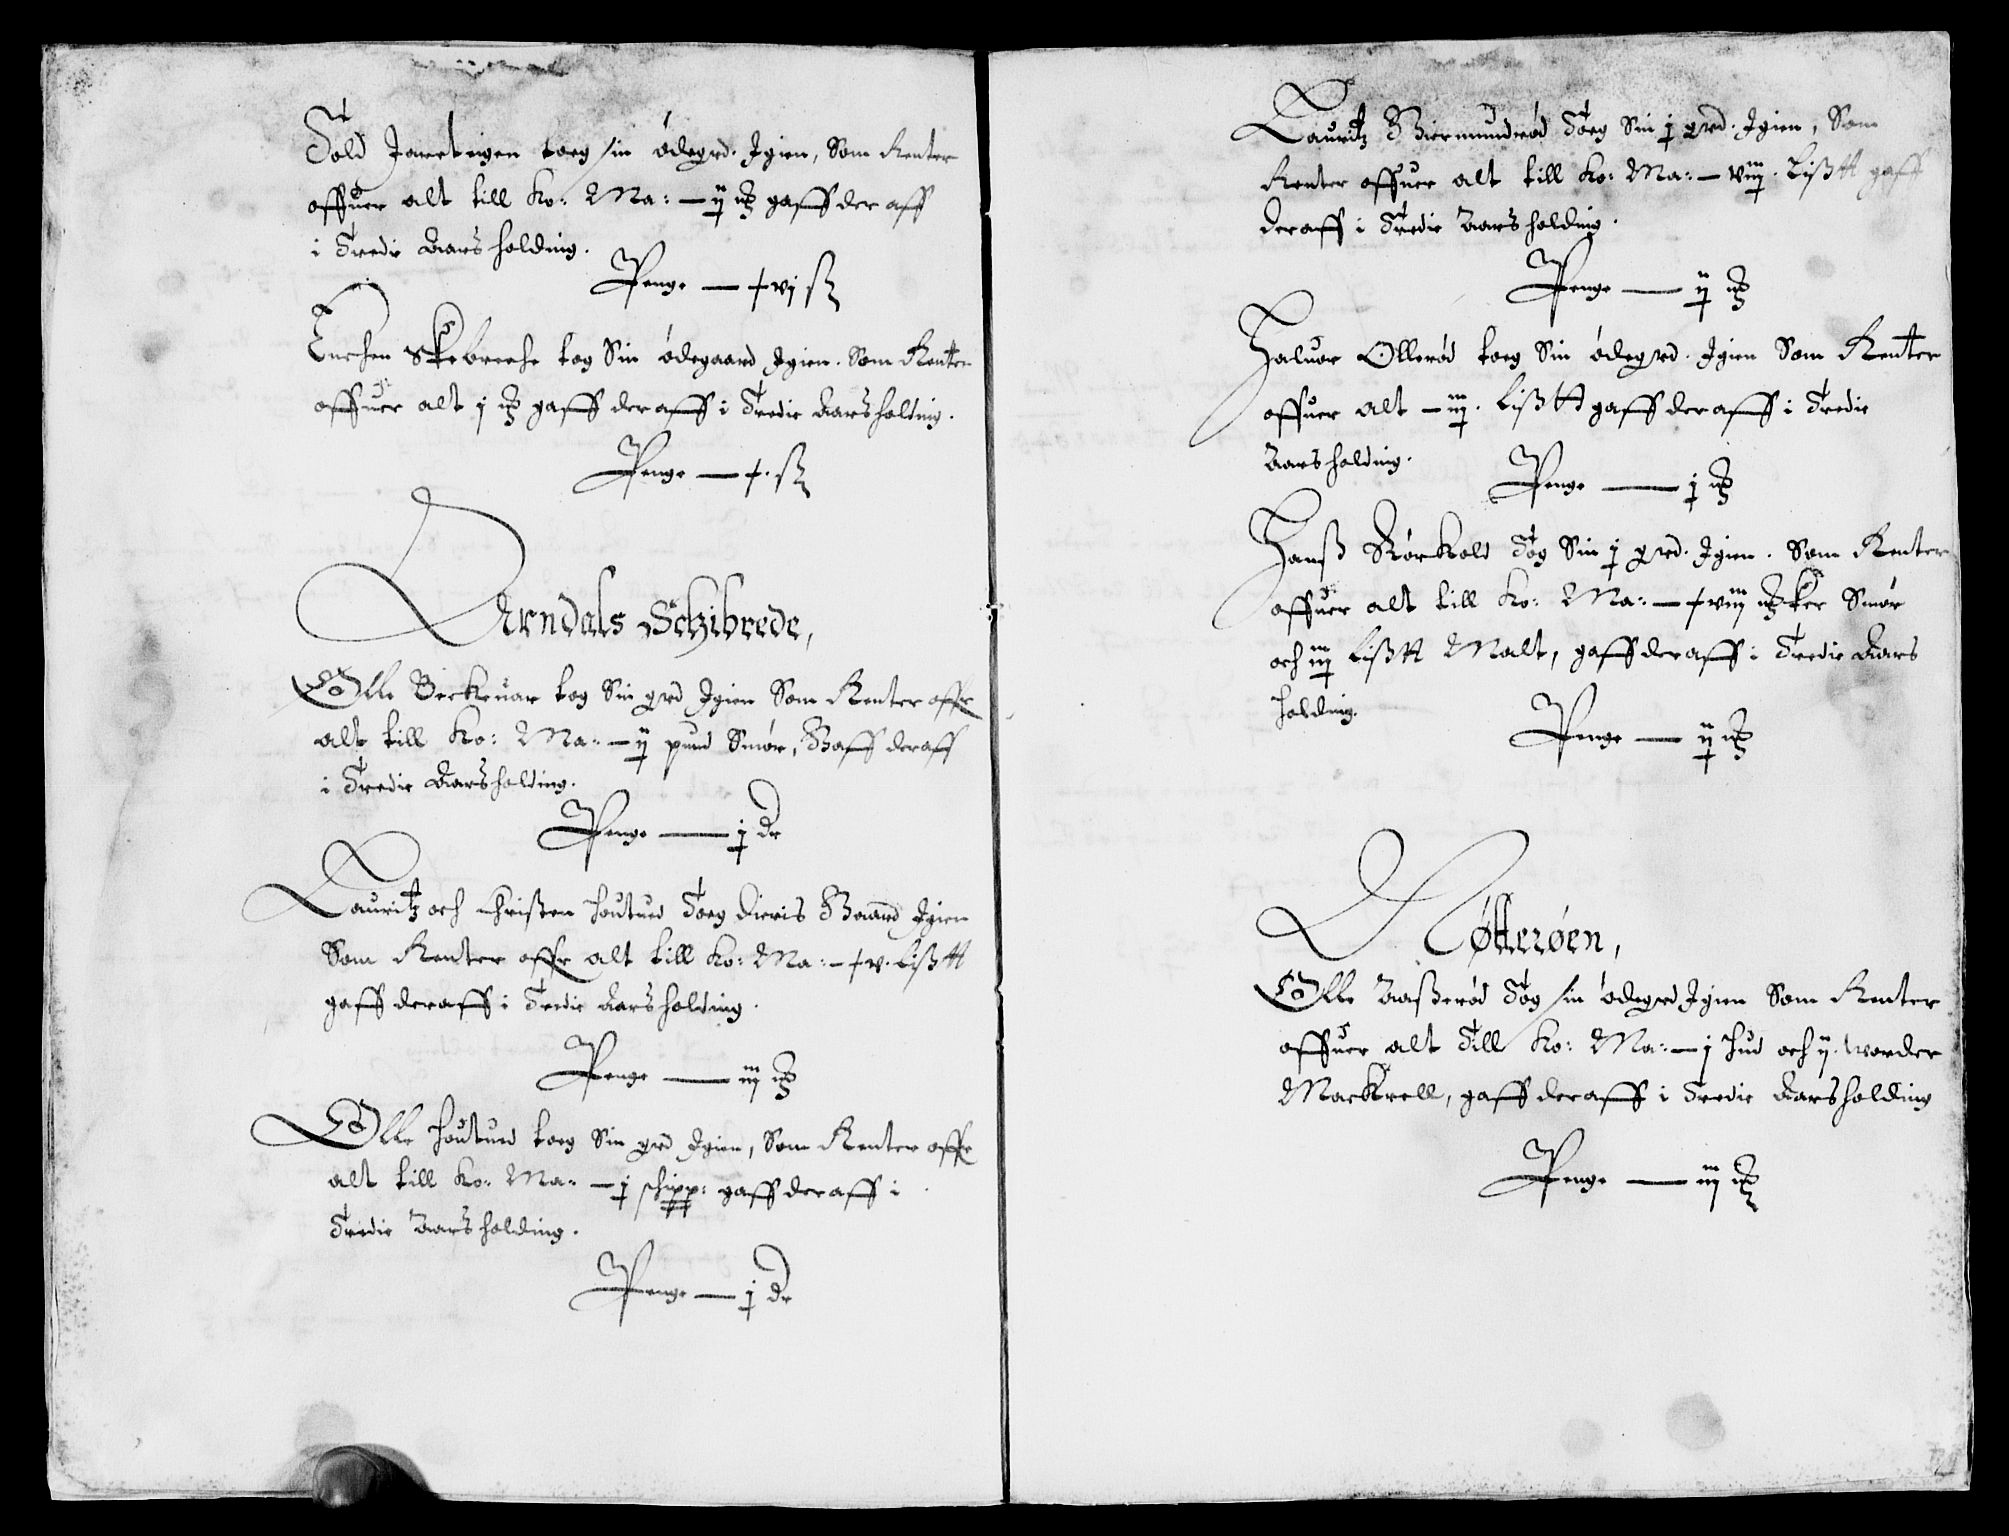 Told Jareteigen toeg sin ødegrd. Igien, Som Renter
offuer alt till Ko: Ma: – ij mk gaff der aff
i Tredie Aars holding.
Penge — xvj ß
Enchen Skebrechе tog Sin ødegaard Igien. Som Renter
offuer alt j mk gaff deraff i Tredie Aars holding.
Penge — x. ß
Arndals Schibrede,
Olle Beckeuar tog Sin grd Igien Som Renter offr
alt till Ko: Ma: – ij pund Smør, Gaff deraff
i Tredie Aars holding.
Penge — j dr
Lauritz och Christen Houtued Toeg dieris Gaard Igien
Som Renter offr alt till Ko: Ma: – xv. Lißtt
gaff deraff i Tredie Aars holding.
Penge — iij mk
Olle Houtued toeg Sin grd Igien, Som Renter offr
alt till Ko: Ma: – j schipp: gaff deraff i
Tredie Aars holding.
Penge — j dr
Lauritz Giermundrød Toeg Sin j grd. Igien, Som
Renter offuer alt till Ko: Ma: – viij. Lißtt gaff
deraff i Tredie Aars holding.
Penge — ij mk
Haluor Ollerød toeg Sin ødegrd. Igien Som Renter
offuer alt – iiij. Lißtt gaff deraff i Tredie
Aars holding.
Penge — j mk
Hanß Rørkold Tog Sin j grd. Igien. Som Renter
offuer alt till Ko: Ma: – xviij mker Smør
och iiij Lißtt Malt, gaff deraff i Tredie Aars
holding.
Penge — ij mk
Nøtterøen,
Olle Aaßerød Tog sin ødegrd Igien Som Renter
offuer alt Till Ko: Ma: – j Hud och ij. Worder
Mackrell, gaff deraff i Tredie Aars holding
Penge — iij mk